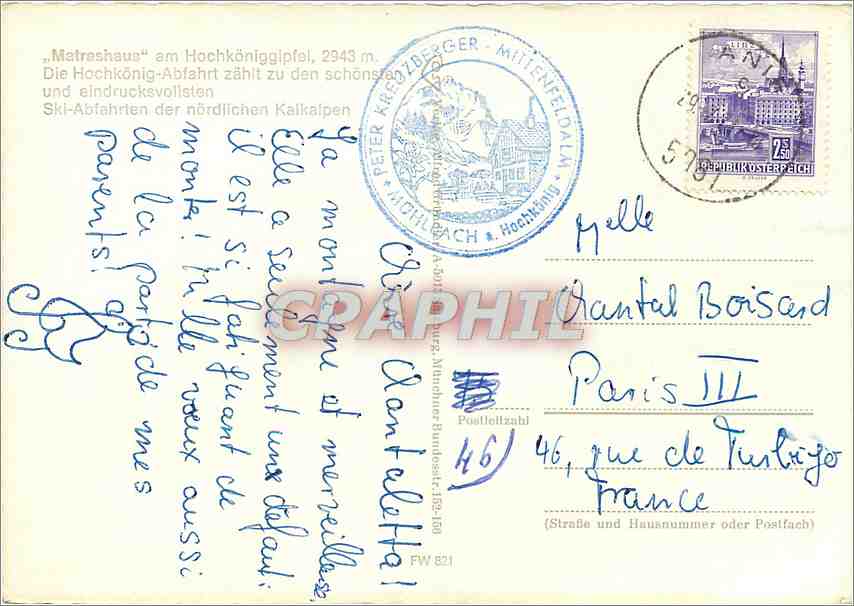 „Matrashaus" am Hochköniggipfel, 2943 m.
Die Hochkönig-Abfahrt zählt zu den schönsten
und eindrucksvollsten
Ski-Abfahrten der nördlichen Kalkalpen
PETER KREUZBERGER - MITTENFELDALM
MÜHLBACH a. Hochkönig
5761
REPUBLIK ÖSTERREICH
2.50
Chère Chantaletta!
La montagne et merveilleuse.
Elle a seulement une defaut:
il est si fatiguant de
monter! Mille vœux aussi
de la part de mes
parents!
Melle
Chantal Boisard
Paris III
46, rue de Turbigo
France
Postleitzahl
46)
(Straße und Hausnummer oder Postfach)
Münchner Bundesstr. 152-156
FW 821
CPAPHIL